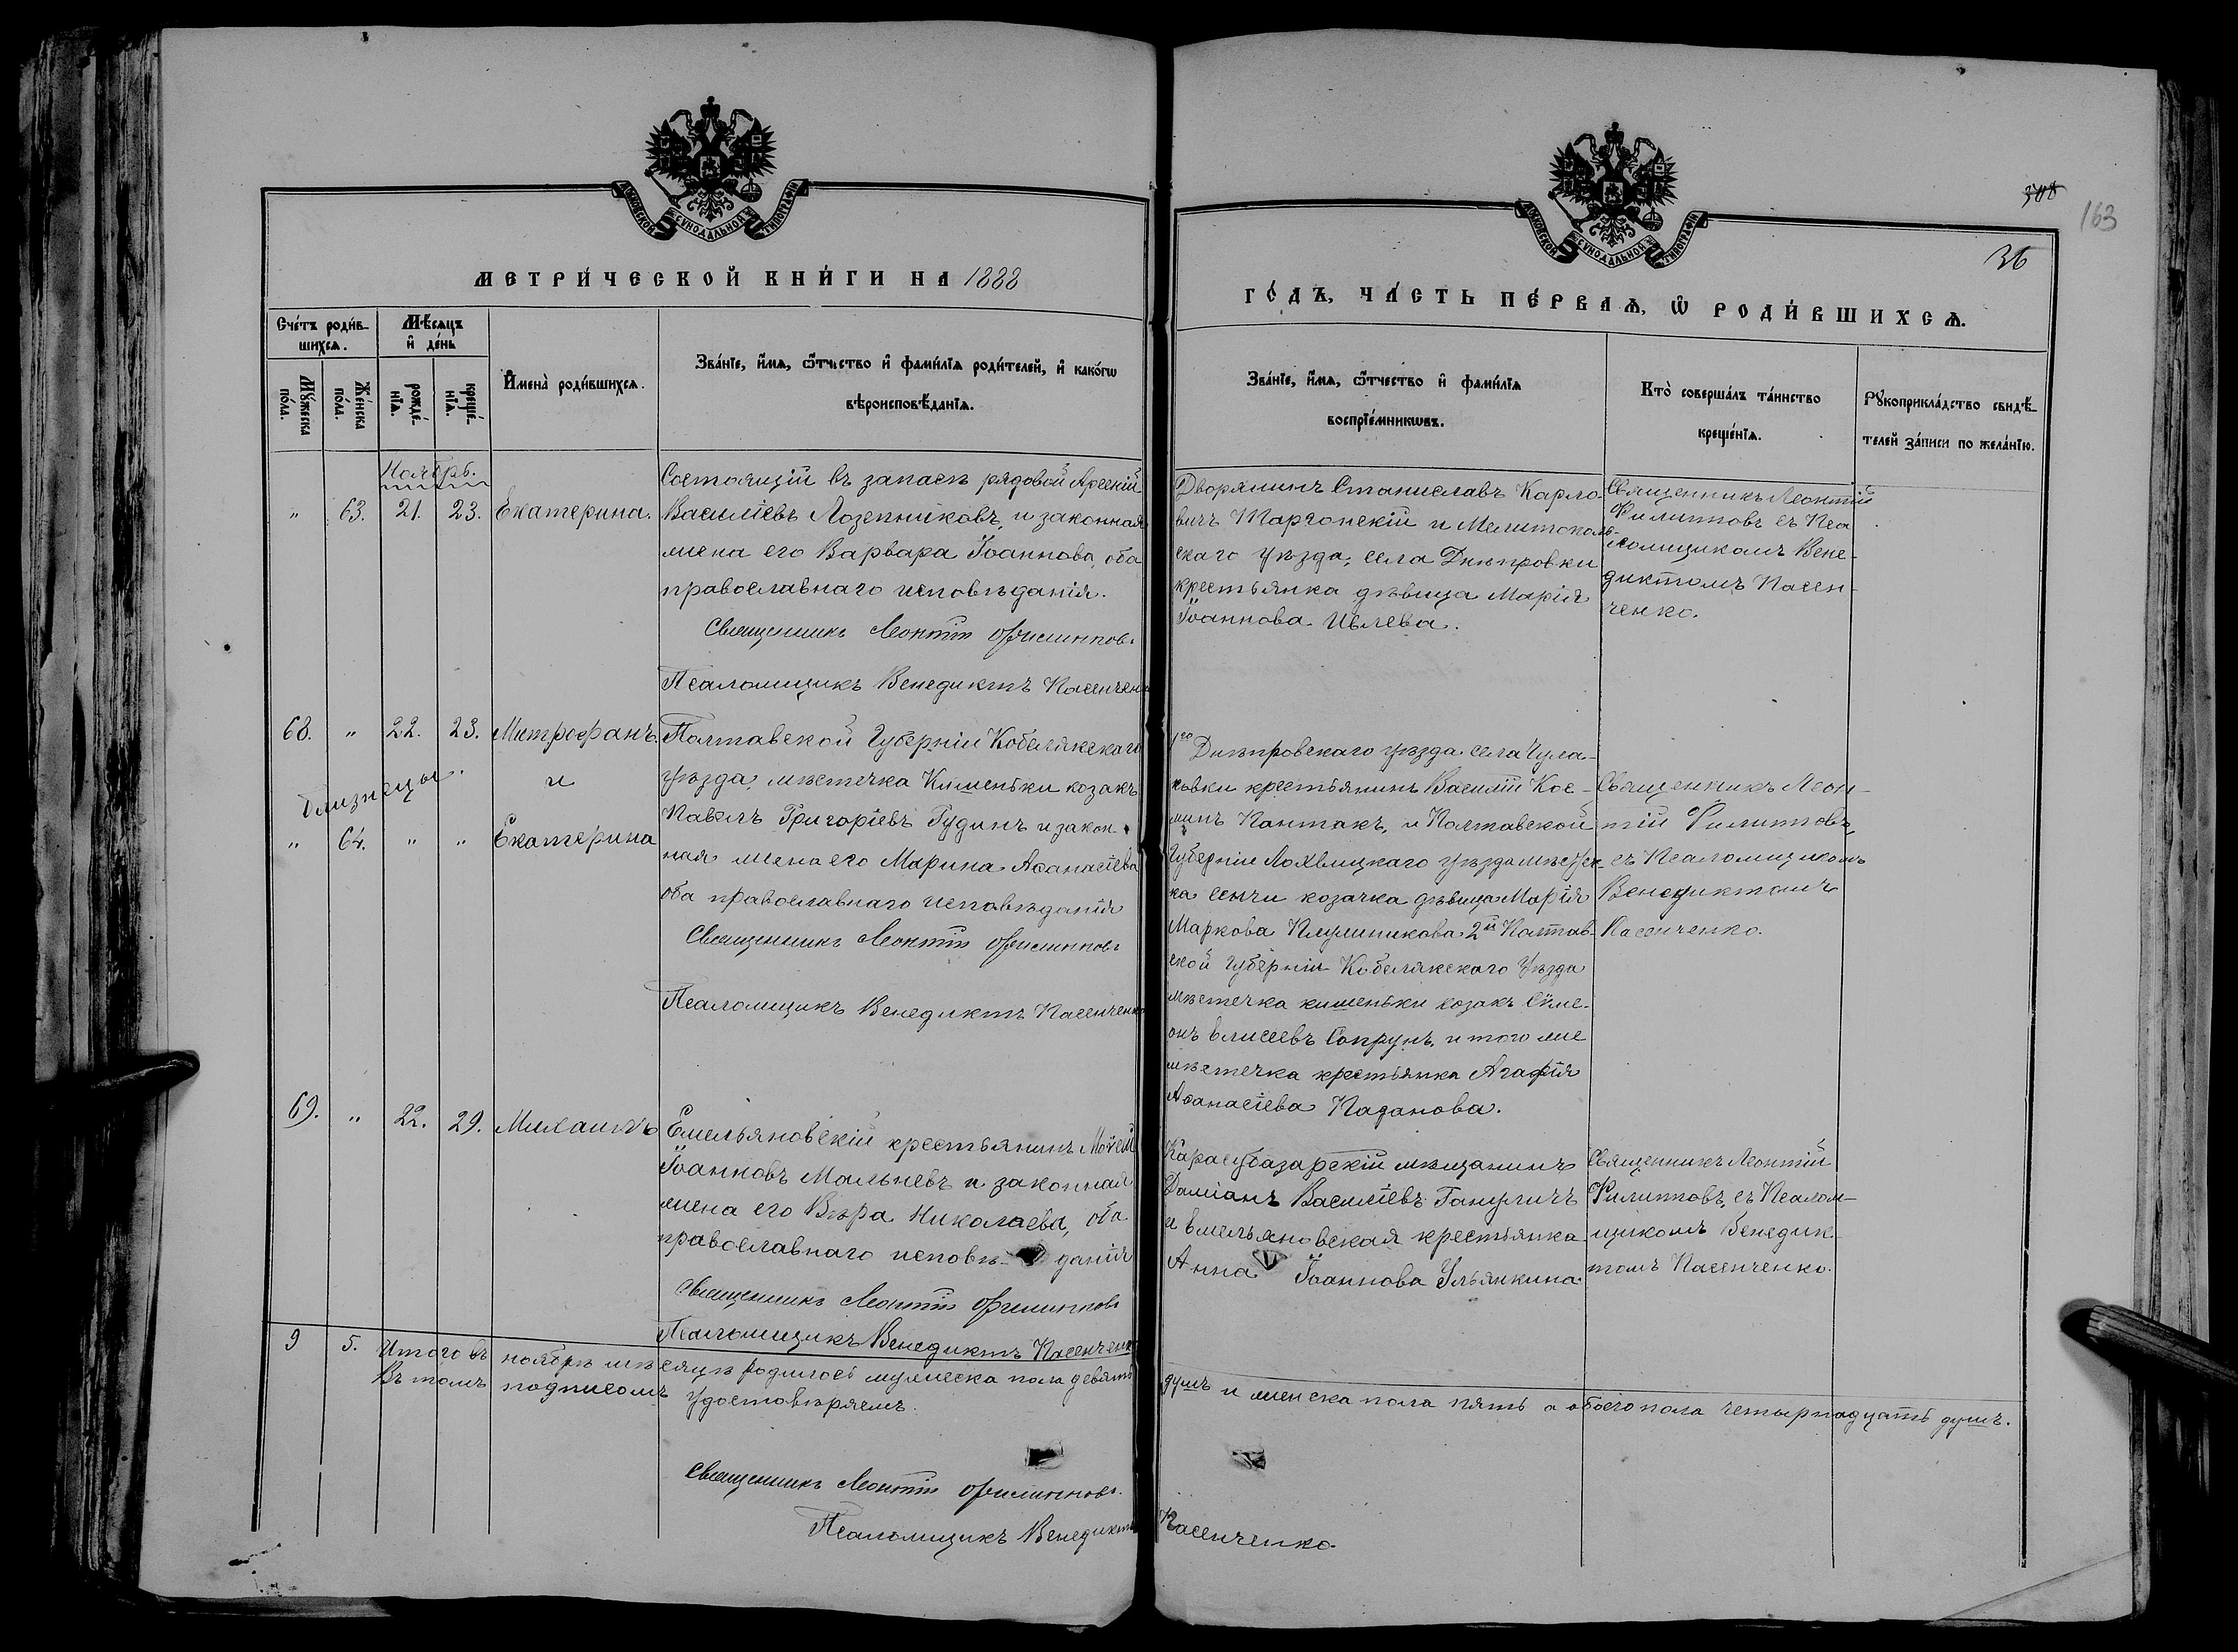 МОСКОВСКОЙ СѴНОДАЛЬНОЙ ТИПОГРАФІИ
МЕТРИ́ЧЕСКОЙ КНИ́ГИ НА 1888
Сче́тъ роди́в-
шихсѧ.
Мѣ́сѧцъ
и҆ де́нь
Мꙋ́жеска
по́ла.
Же́нска
по́ла.
рожде́-
нїѧ.
креще́-
нїѧ.
И҆мена̀ роди́вшихсѧ.
Зва́нїе, и҆́мѧ, ѻ҆́тчество и҆ фами́лїѧ роди́телей, и҆ како́гѡ
вѣроисповѣ́данїѧ.
Ноябрь.
" 63. 21. 23. Екатерина.
Состоящій въ запасѣ рядовой Арсеній
Василіевъ Лозепниковъ, и законная
жена его Варвара Іоаннова, оба
православнаго исповѣданія.
Священникъ Леонтій Филипповъ
Псаломщикъ Венедиктъ Пасенченко
68. " 22. 23. Митрофанъ.
близнецы. и
" 64. " " Екатерина
Полтавской Губерніи Кобелякскаго
уѣзда, мѣстечка Кишеньки козакъ
Павелъ Григоріевъ Гудинъ и закон-
ная жена его Марина Аѳанасіева
оба православнаго исповѣданія
Священникъ Леонтій Филипповъ
Псаломщикъ Венедиктъ Пасенченко
69. " 22. 29. Михаилъ
Емельяновскій крестьянинъ Моѵсей
Іоанновъ Мальневъ и законная
жена его Вѣра Николаева, оба
православнаго исповѣ- данія
Священникъ Леонтій Филипповъ
Псаломщикъ Венедиктъ Пасенченко
9 5. Итого въ ноябрѣ мѣсяцѣ родилось мужеска пола девять
Въ томъ подписомъ удостовѣряемъ.
Священникъ Леонтій Филипповъ.
Псаломщикъ Венедиктъ
МОСКОВСКОЙ СѴНОДАЛЬНОЙ ТИПОГРАФІИ
308
163
36
ГО́ДЪ, ЧА́СТЬ ПЕ́РВАѦ, Ѡ҆ РОДИ́ВШИХСѦ.
Зва́нїе, и҆́мѧ, ѻ҆́тчество и҆ фами́лїѧ
воспрїе́мникѡвъ.
Кто̀ соверша́лъ та́инство
креще́нїѧ.
Рꙋкоприкла́дство свидѣ́-
телей за́писи по жела́нїю.
Дворянинъ Станиславъ Карло-
вичъ Маргонскій и Мелитополь-
скаго уѣзда, села Днѣпровки
крестьянка дѣвица Марія
Іоаннова Ивлева.
Священникъ Леонтій
Филипповъ съ Пса-
ломщикомъ Вене-
диктомъ Пасен-
ченко.
1го Днѣпровскаго уѣзда села Чула-
ковки крестьянинъ Василій Кос-
минъ Пантакъ, и Полтавской
Губерніи Лохвицкаго уѣзда мѣстеч-
ка Сенчи козачка дѣвица Марія
Маркова Плужникова 2й Полтав-
ской губерніи Кобелякскаго Уѣзда
Мѣстечка кишеньки козакъ Сѵме-
онъ Елисеевъ Сопрунъ, и того же
мѣстечка крестьянка Агафія
Аѳанасіева Паданова.
Священникъ Леон-
тій Филипповъ,
съ Псаломщикомъ
Венедиктомъ
Пасенченко.
Карасубазарскій мѣщанинъ
Даміанъ Василіевъ Гануличъ
и Емельяновская крестьянка
Анна Іоаннова Ульянкина
Священникъ Леонтій
Филипповъ, съ Псалом-
щикомъ Венедик-
томъ Пасенченко.
душъ и женска пола пять а обоего пола четырнадцать душъ.
Пасенченко.